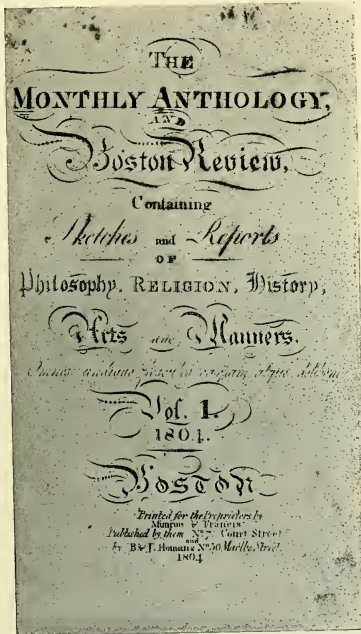 THE
MONTHLY ANTHOLOGY,
AND
Boston Review,
Containing
Sketches and Reports
OF
Philosophy, RELIGION, History,
Arts and Manners.
Omnes undique atque
Vol. I.
1804.
BOSTON
Printed for the Proprietors by
Munroe & Francis
Published by them No 7 Court Street
and
by B & J. Homans No 50, Marlbo. Street.
1804